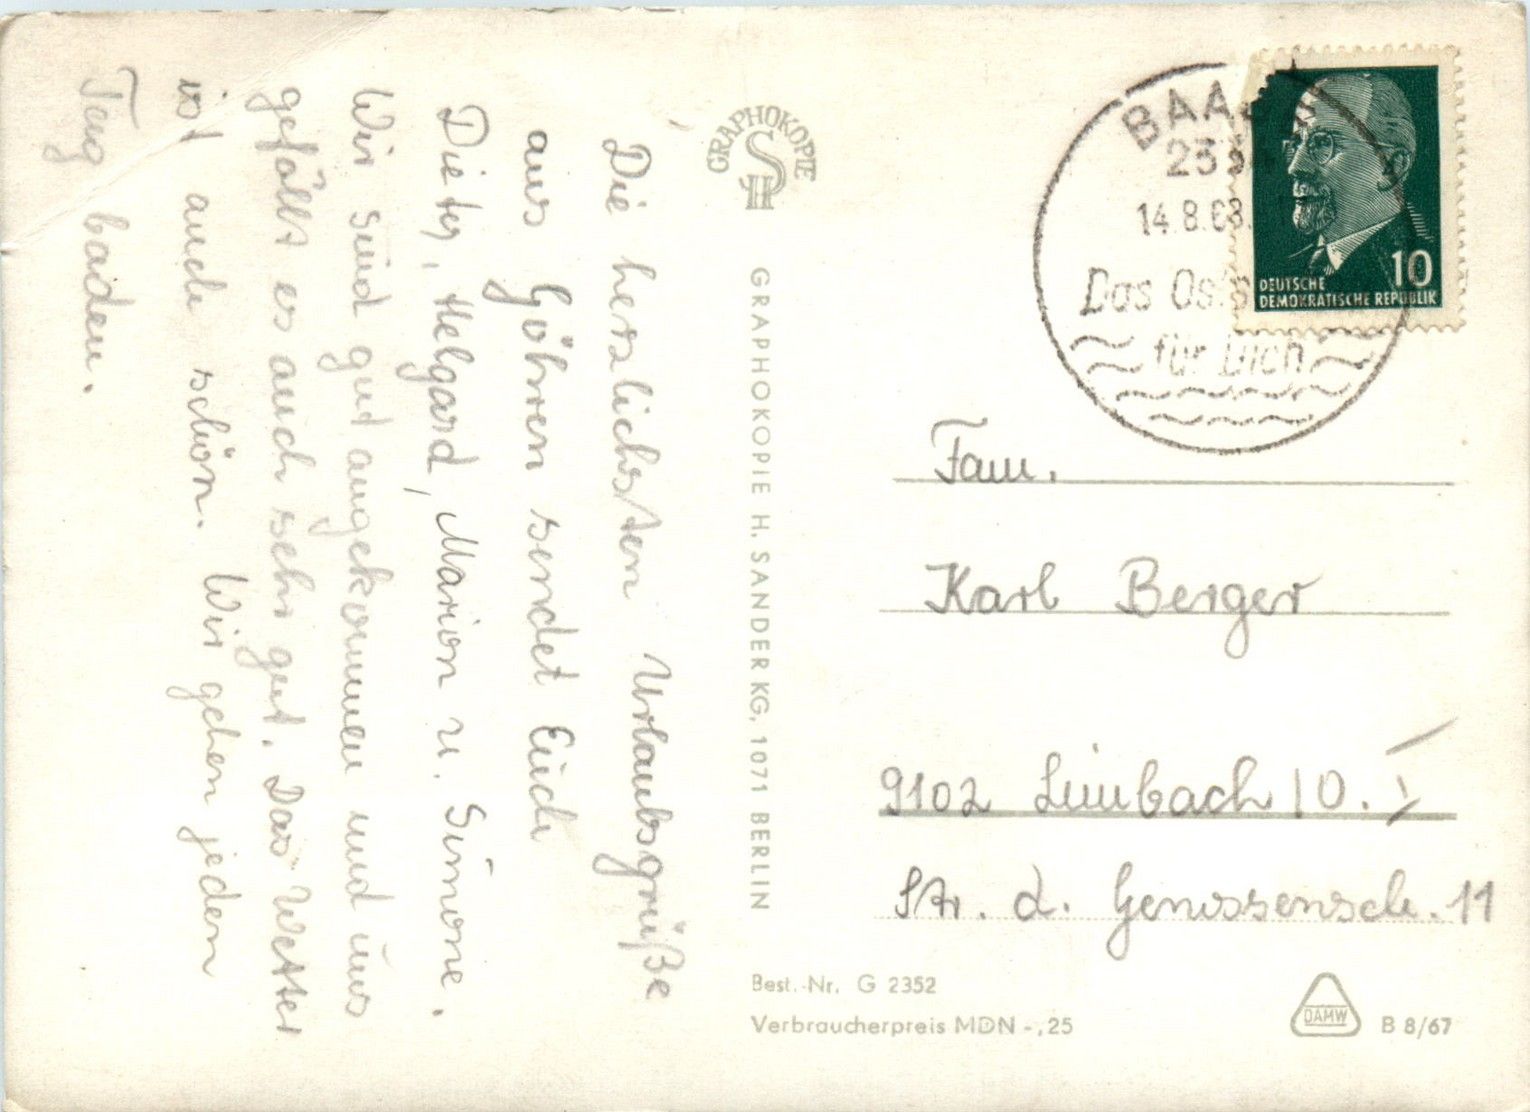 Die herzlichsten Urlaubsgrüße
aus Göhren sendet Euch
Dieter, Helgard, Marion u. Simone.
Wir sind gut angekommen und uns
gefällt es auch sehr gut. Das Wetter
ist auch schön. Wir gehen jeden
Tag baden.
GRAPHOKOPIE
H S
GRAPHOKOPIE H. SANDER KG, 1071 BERLIN
BAABE
14.8.68
Das Ost
für Dich
10
DEUTSCHE
DEMOKRATISCHE REPUBLIK
Fam.
Karl Berger
9102 Limbach/O. I
Str. d. Genossensch. 11
Best.-Nr. G 2352
Verbraucherpreis MDN -,25
DAMW
B 8/67